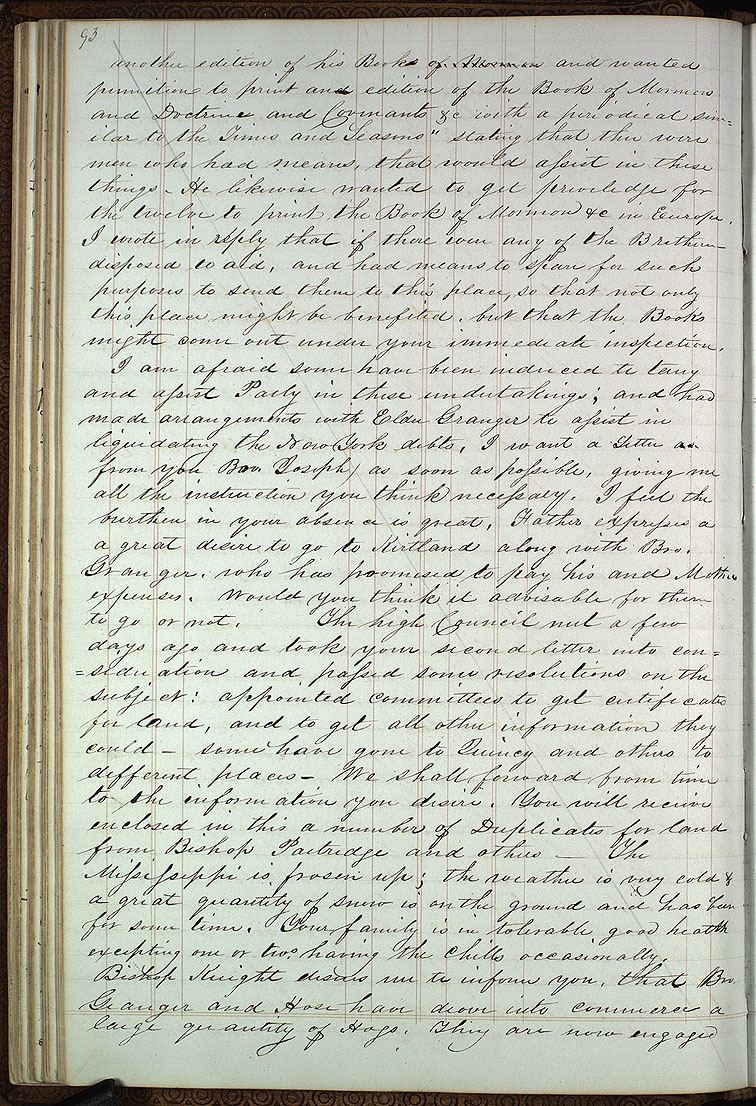 93
another edition of his Books of Mormon and wanted
permition to print and edition of the Book of Mormon
and Doctrine and Covinants &c with a periodical sim=
ilar to the Times and Seasons" stating that their were
men who had means, that would assist in these
things. He likewise wanted to get priveledge for
the twelve to print the Book of Mormon &c in Europe.
I wrote in reply that if there were any of the Brethern
disposed to aid, and had means to spare for such
purposes to send them to this place, so that not only
this place might be benefited, but that the Books
might come out under your immediate inspection.
I am afraid some have been induced to tarry
and assist Parly in these undertakings; and had
made arrangements with Elder Granger to assist in
liquidating the New York debts. I want a Letter
from you Bro. Joseph, as soon as possible, giving me
all the instruction you think necessary. I feel the
burthen in your absence is great. Father expresses a
a great desire to go to Kirtland along with Bro.
Granger, who has promised to pay his and Mothers
expenses. Would you think it advisable for them
to go or not. The high Council met a few
days ago and took your second letter into con=
=sideration and passed some resolutions on the
subject: appointed committees to get certificates
for land, and to get all other information they
could — some have gone to Quincy and others to
different places — We shall forward from time
to the information you desire. You will recieve
enclosed in this a number of Duplicates for land
from Bishop Partridge and others — The
Mississeppi is frosen up; the weather is very cold &
a great quantity of snow is on the ground and has been
for some time. Your family is in tolerable good health
excepting one or two having the Chills occasionally.
Bishop Knight desires me to inform you, that Bro.
Granger and Hose have drove into commerce a
large quantity of Hogs. They are now engaged